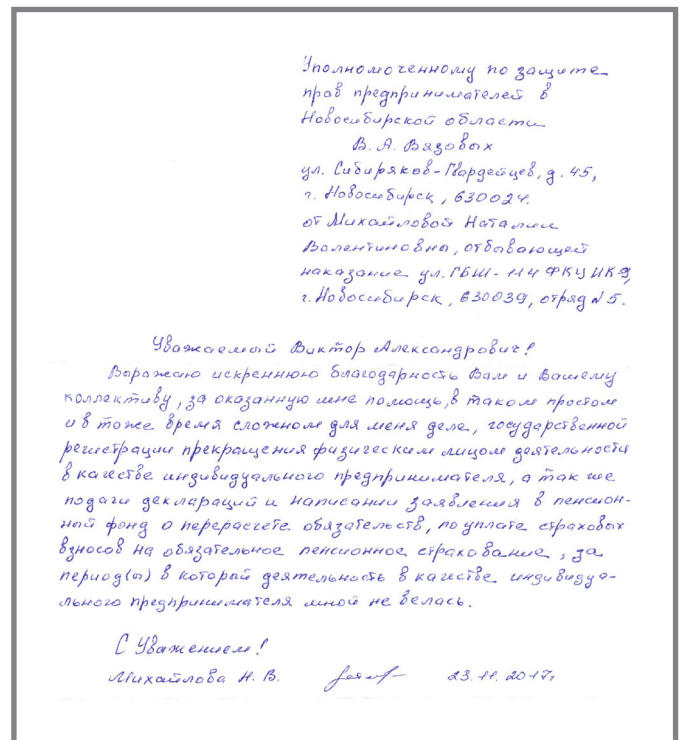 Уполномоченному по защите
прав предпринимателей в
Новосибирской области
В. А. Вязовых
ул. Сибиряков-Гвардейцев, д. 45,
г. Новосибирск, 630024.
от Михайловой Наталии
Валентиновны, отбывающей
наказание ул. ГБШ-114 ФКУ ИК-9,
г. Новосибирск, 630039, отряд № 5.
Уважаемый Виктор Александрович!
Выражаю искреннюю благодарность Вам и Вашему
коллективу, за оказанную мне помощь, в таком простом
и в тоже время сложном для меня деле, государственной
регистрации прекращения физическим лицом деятельности
в качестве индивидуального предпринимателя, а так же
подачи деклараций и написании заявления в пенсион-
ный фонд о перерасчете обязательств, по уплате страховых
взносов на обязательное пенсионное страхование, за
период(ы) в который деятельность в качестве индивидуа-
льного предпринимателя мной не велась.
С Уважением!
Михайлова Н. В. 23.11.2017г